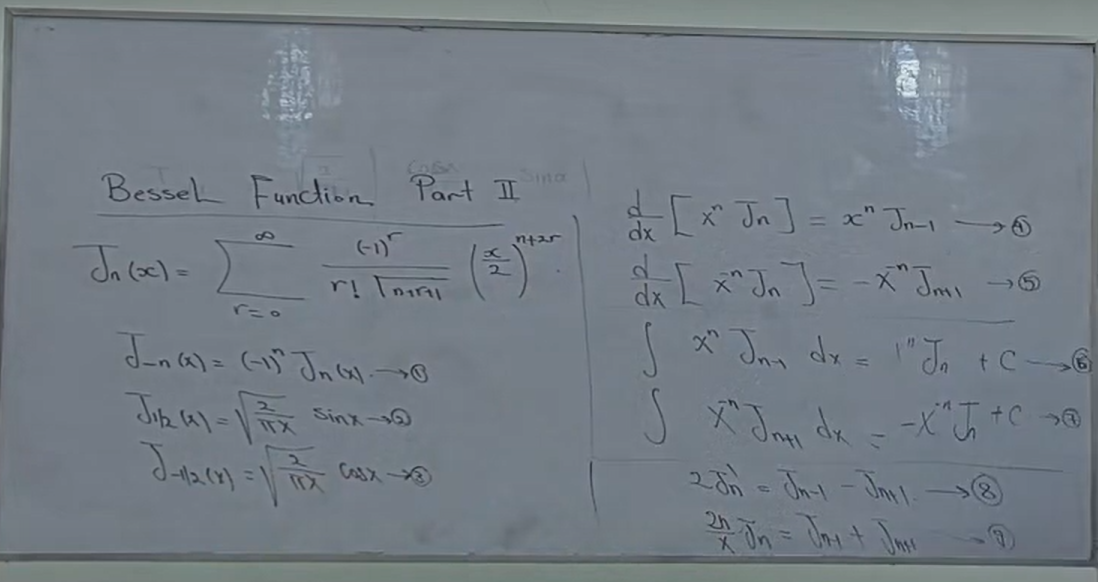 Bessel Function Part II
Jₙ(x) = ∑_{r=0}^{∞} (-1)^r / (r! Γ(n+r+1)) (x/2)^{n+2r}
J₋ₙ(x) = (-1)ⁿ Jₙ(x). → ①
J_{1/2}(x) = √(2/πx) sinx → ②
J_{-1/2}(x) = √(2/πx) cosx → ③
d/dx [xⁿ Jₙ] = xⁿ Jₙ₋₁ → ④
d/dx [x⁻ⁿ Jₙ] = -x⁻ⁿ Jₙ₊₁ → ⑤
∫ xⁿ Jₙ₋₁ dx = ⁿ Jₙ + C → ⑥
∫ x⁻ⁿ Jₙ₊₁ dx = -x⁻ⁿ Jₙ + C → ⑦
2Jₙ' = Jₙ₋₁ - Jₙ₊₁. → ⑧
2n/x Jₙ = Jₙ₋₁ + Jₙ₊₁ → ⑨